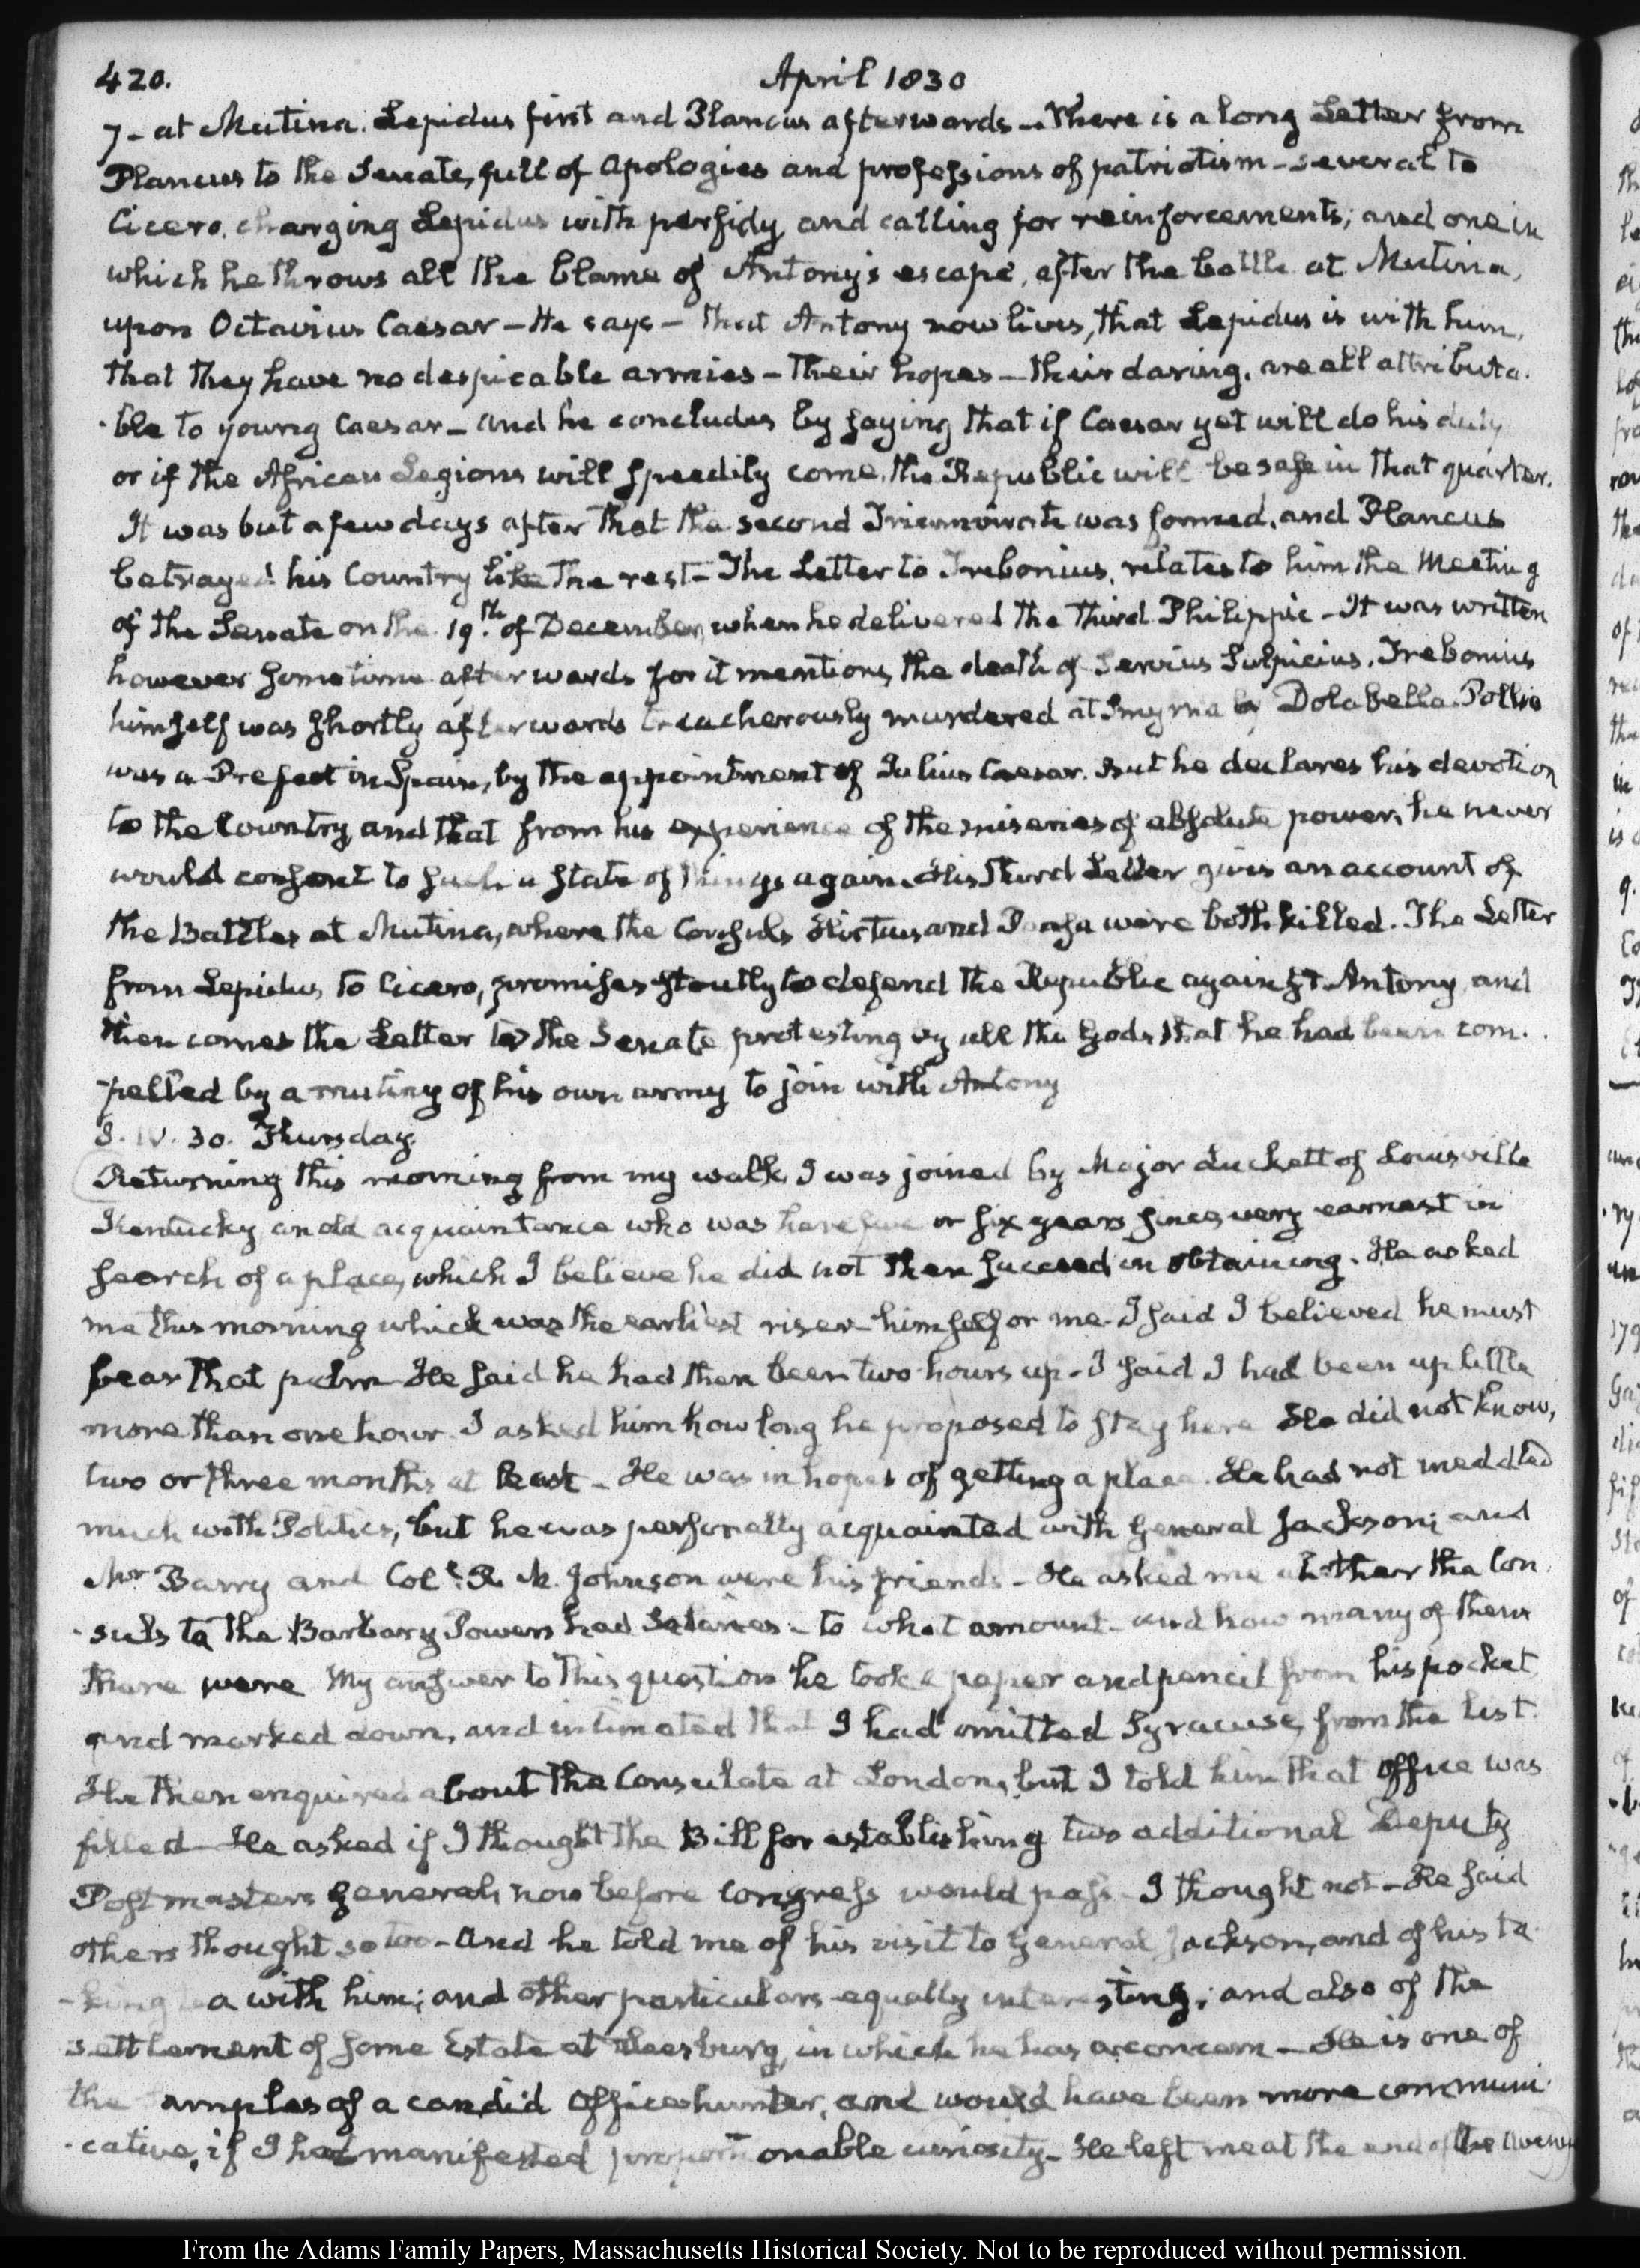 420. April 1830
7 - at Mutina. Lepidus first and Plancus afterwards - There is a long Letter from
Plancus to the Senate, full of apologies and professions of patriotism - several to
Cicero, charging Lepidus with perfidy and calling for reinforcements; and one in
which he throws all the blame of Antony's escape, after the battle at Mutina,
upon Octavius Caesar - He says - that Antony now lives, that Lepidus is with him,
that they have no despicable armies - their hopes - their daring, are all attributa-
-ble to young Caesar - and he concludes by saying that if Caesar yet will do his duty
or if the African Legions will speedily come, the Republic will be safe in that quarter.
It was but a few days after that the second Triumvirate was formed, and Plancus
betrayed his Country like the rest - The Letter to Trebonius, relates to him the Meeting
of the Senate on the 19th. of December, when he delivered the third Philippic - It was written
however sometime afterwards for it mentions the death of Servius Sulpicius. Trebonius
himself was shortly afterwards treacherously murdered at Smyrna by Dolabella. Pollio
was a Prefect in Spain, by the appointment of Julius Caesar. But he declares his devotion
to the Country, and that from his experience of the miseries of absolute power, he never
would consent to such a state of things again. His third Letter gives an account of
the Battles at Mutina, where the Consuls Hirtius and Pansa were both killed. The Letter
from Lepidus to Cicero, promises stoutly to defend the Republic against Antony and
then comes the Letter to the Senate protesting by all the Gods that he had been com-
-pelled by a mutiny of his own army to join with Antony
8. IV. 30. Thursday.
Returning this morning from my walk, I was joined by Major Luckett of Louisville
Kentucky an old acquaintance who was here five or six years since, very earnest in
search of a place, which I believe he did not then succeed in obtaining. He asked
me this morning which was the earliest riser himself or me. I said I believed he must
bear that palm. He said he had then been two hours up - I said I had been up little
more than one hour. I asked him how long he proposed to stay here. He did not know,
two or three months at least - He was in hopes of getting a place. He had not meddled
much with Politics, but he was personally acquainted with General Jackson; and
Mr Barry and Coll. R. M. Johnson were his friends - He asked me whether the Con-
-suls to the Barbary Powers had Salaries - to what amount - and how many of them
there were. My answer to this question he took a paper and pencil from his pocket
and marked down, and intimated that I had omitted Syracuse, from the list.
He then enquired about the Consulate at London, but I told him that office was
filled - He asked if I thought the Bill for establishing two additional Deputy
Postmasters General, now before Congress would pass - I thought not - He said
others thought so too - And he told me of his visit to General Jackson, and of his ta-
-king tea with him; and other particulars equally interesting; and also of the
settlement of some Estate at Leesburg, in which he has a concern - He is one of
the samples of a candid office hunter, and would have been more communi-
-cative, if I had manifested proportionable curiosity - He left me at the end of the Avenue
From the Adams Family Papers, Massachusetts Historical Society. Not to be reproduced without permission.